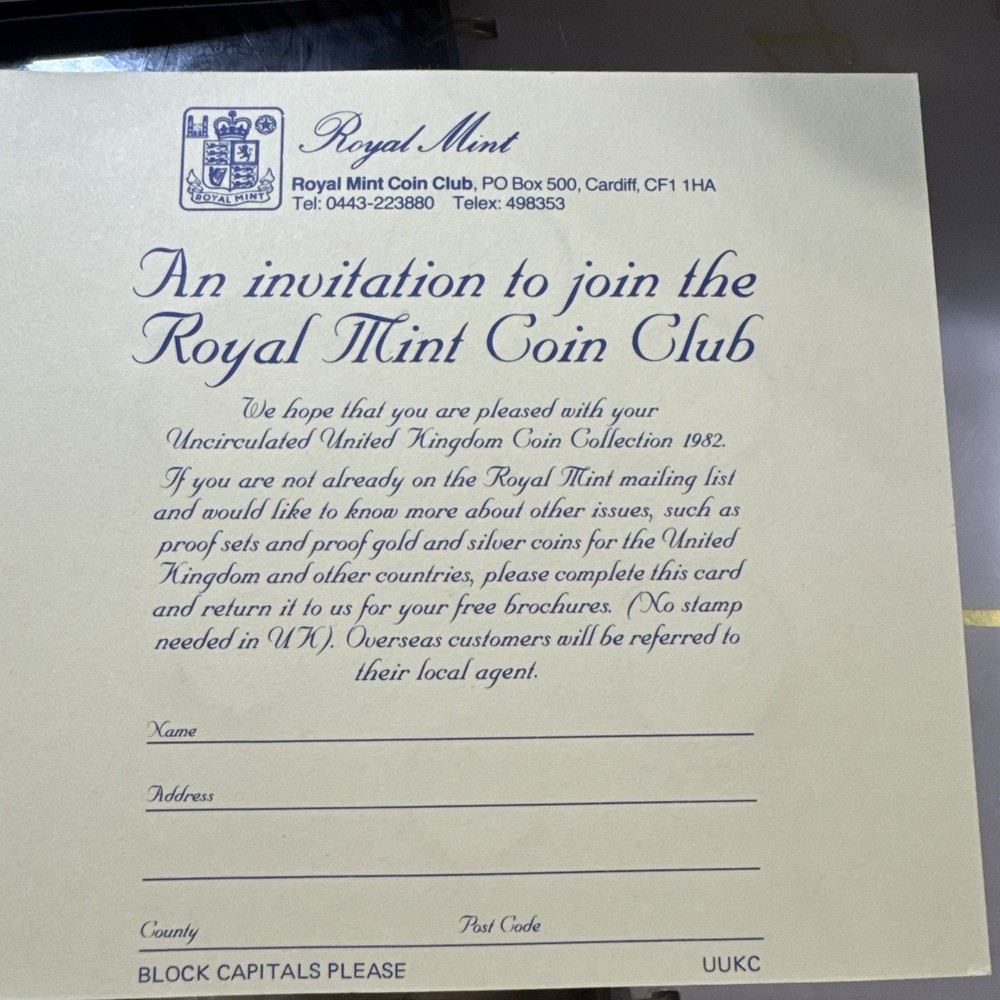 ROYAL MINT
Royal Mint
Royal Mint Coin Club, PO Box 500, Cardiff, CF1 1HA
Tel: 0443-223880 Telex: 498353
An invitation to join the
Royal Mint Coin Club
We hope that you are pleased with your
Uncirculated United Kingdom Coin Collection 1982.
If you are not already on the Royal Mint mailing list
and would like to know more about other issues, such as
proof sets and proof gold and silver coins for the United
Kingdom and other countries, please complete this card
and return it to us for your free brochures. (No stamp
needed in UK). Overseas customers will be referred to
their local agent.
Name
Address
County Post Code
BLOCK CAPITALS PLEASE UUKC